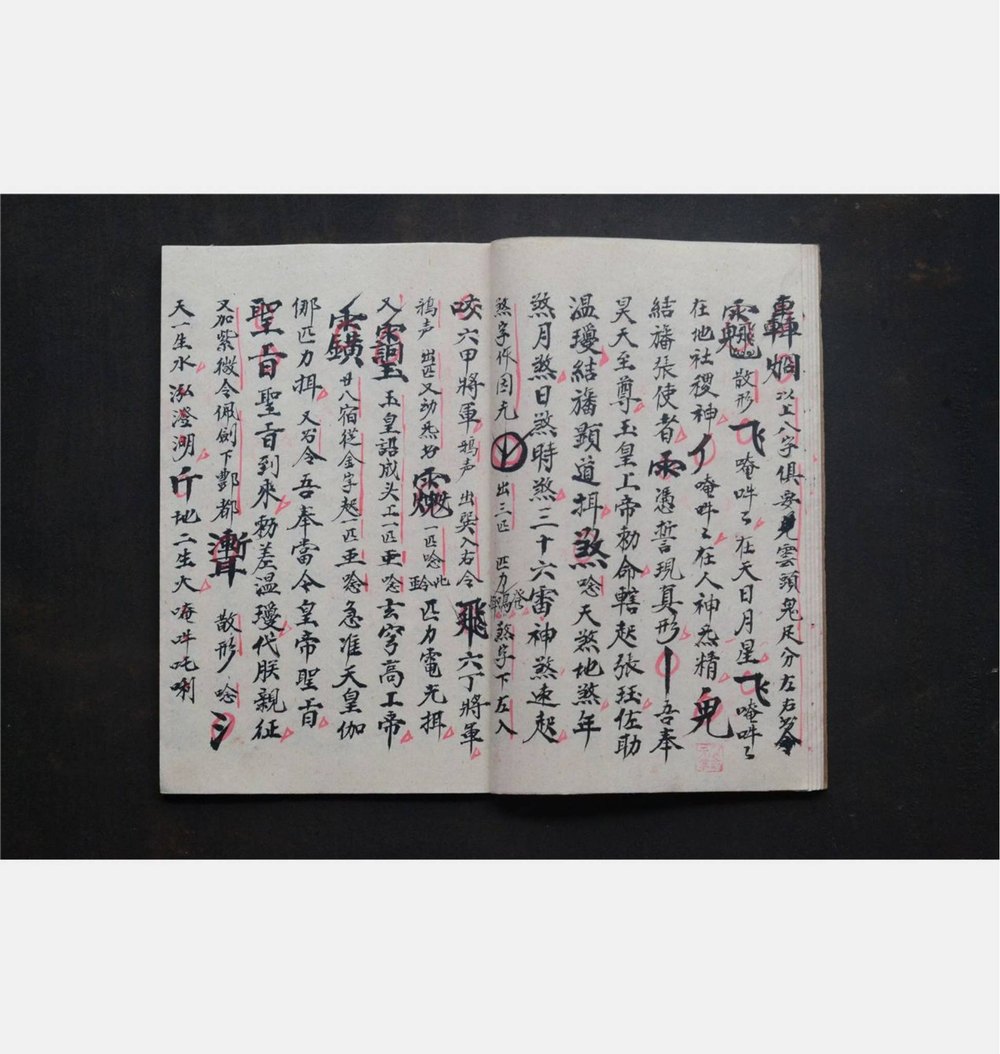 以上八字俱要見雲頭鬼足分左右
散形飞唵吽〻在天日月星飞唵吽〻
在地社稷神亻唵吽〻在人神炁精鬼
結旛張使者雷憑誓現真形丨吾奉
昊天至尊玉皇上帝勅命轄起張珏佐助
温瓊結旛顕道揖煞唸天煞地煞年
煞月煞日煞時煞三十六雷神煞速起
煞字作圈尤出三匹 匹力 煞字下左入
咬六甲將軍鴉声 出巽入右令飛六丁將軍
鴉声 出匹又动炁 一匹唸 匹力電光揖
又 玉皇詔成头工一匹 唸玄穹高工帝
廿八宿從金字起一匹 唸急准天皇伽
倻匹力揖 又 令吾奉當令皇帝聖旨
聖旨聖旨到來勅差温瓊代朕親征
又加紫微令佩劍下酆都 散形唸氵
天一生水泓澄淵斤地二生火唵吽吒唎